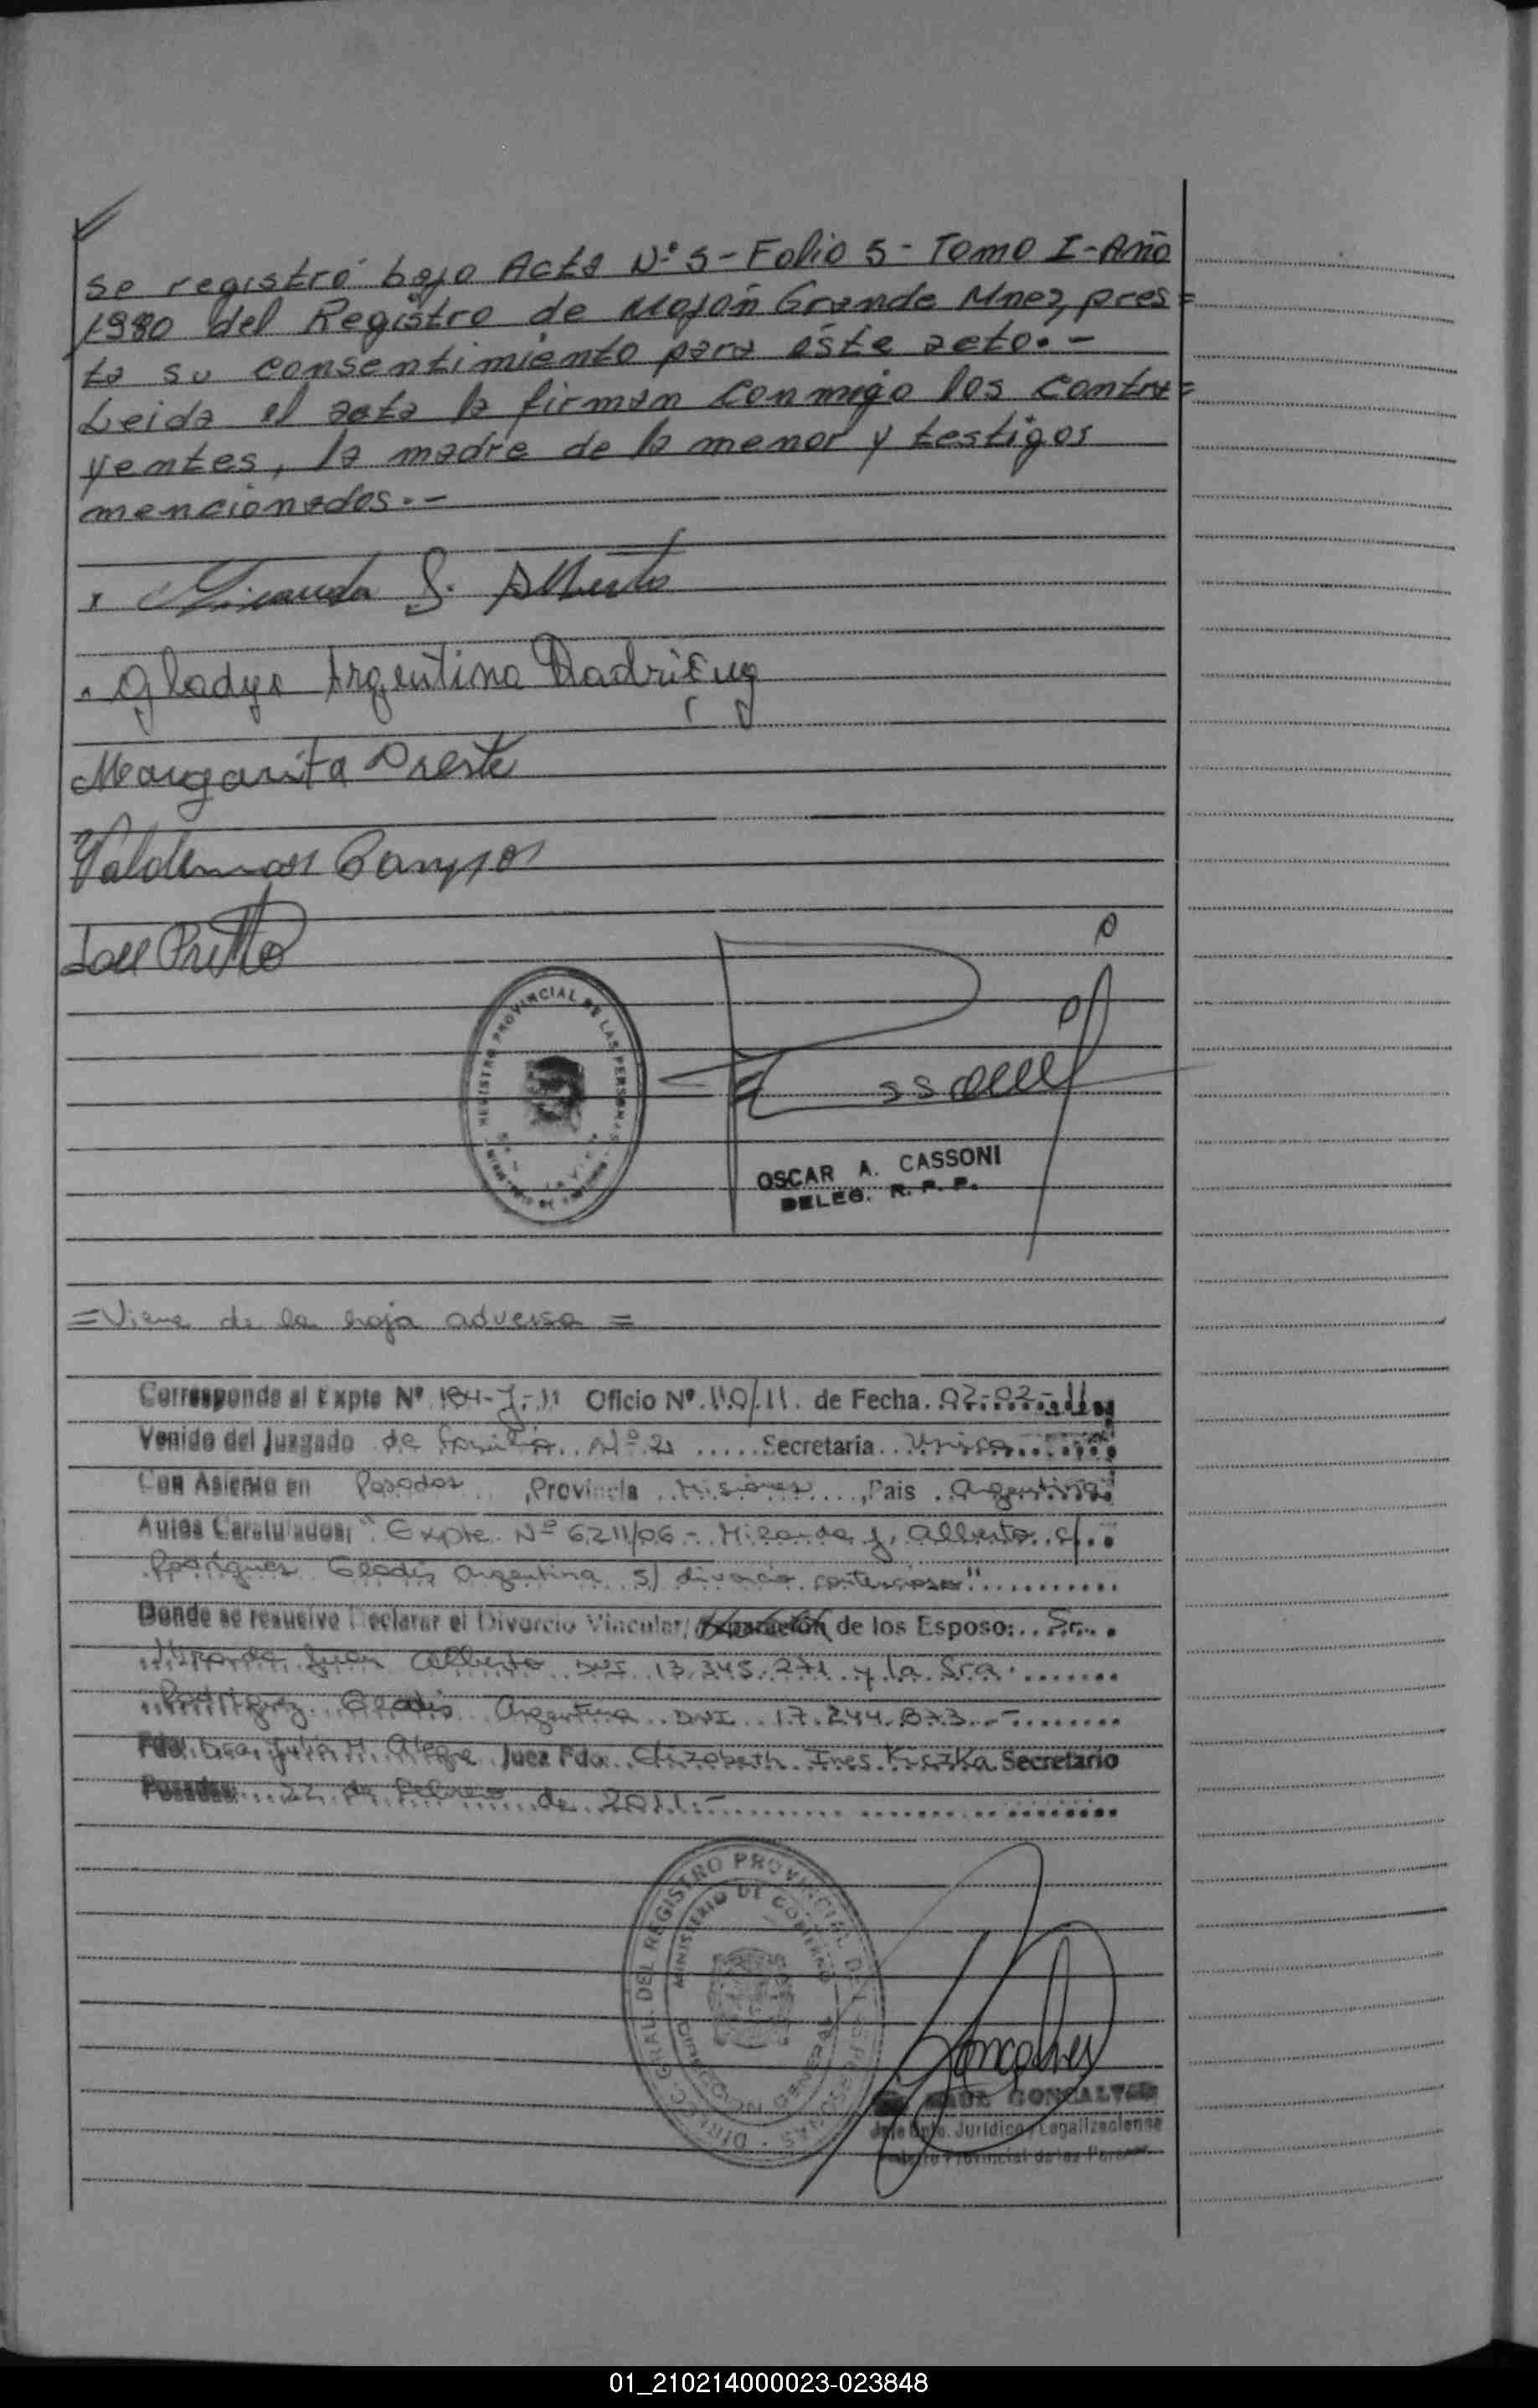 se registró bajo Acta Nº 5 - Folio 5 - Tomo I - Año
1980 del Registro de Mojón Grande Mnes, pres=
ta su consentimiento para éste acto.-
Leida el acta la firman conmigo los contra=
yentes, la madre de la menor y testigos
mencionados.-
Miranda J. Alberto
Gladys Argentina Rodriguez
Margarita Preste
Valdemar Campos
José Pritto
REGISTRO PROVINCIAL DE LAS PERSONAS
OSCAR A. CASSONI
DELEG. R. P. P.
= Viene de la hoja adversa =
Corresponde al Expte Nº 184-J-11 Oficio Nº 110/11. de Fecha. 07-02-11
Venido del Juzgado de Familia Nº 2 Secretaría Unica
Con Asiento en Posadas, Provincia Misiones, Pais Argentina
Autos Caratulados: "Expte. Nº 6211/06 - Miranda J. Alberto c/
Rodriguez Gladis Argentina s/ divorcio contencioso"
Donde se resuelve Declarar el Divorcio Vincular/Separación de los Esposo: Sr.
Miranda Juan Alberto DNI 13.345.271 y la Sra.
Rodriguez Gladis Argentina DNI 17.244.873.-
Fdo. Dra. Julia M. Alegre Juez Fdo. Elizabeth Ines Kiczka Secretario
Posadas 22 de Febrero de 2011.-
DIRECC. GRAL. DEL REGISTRO PROVINCIAL DE LAS PERSONAS
MINISTERIO DE GOBIERNO
Goncalves
RAUL GONCALVES
Jefe Dpto. Jurídico y Legalizaciones
Registro Provincial de las Personas
01_210214000023-023848